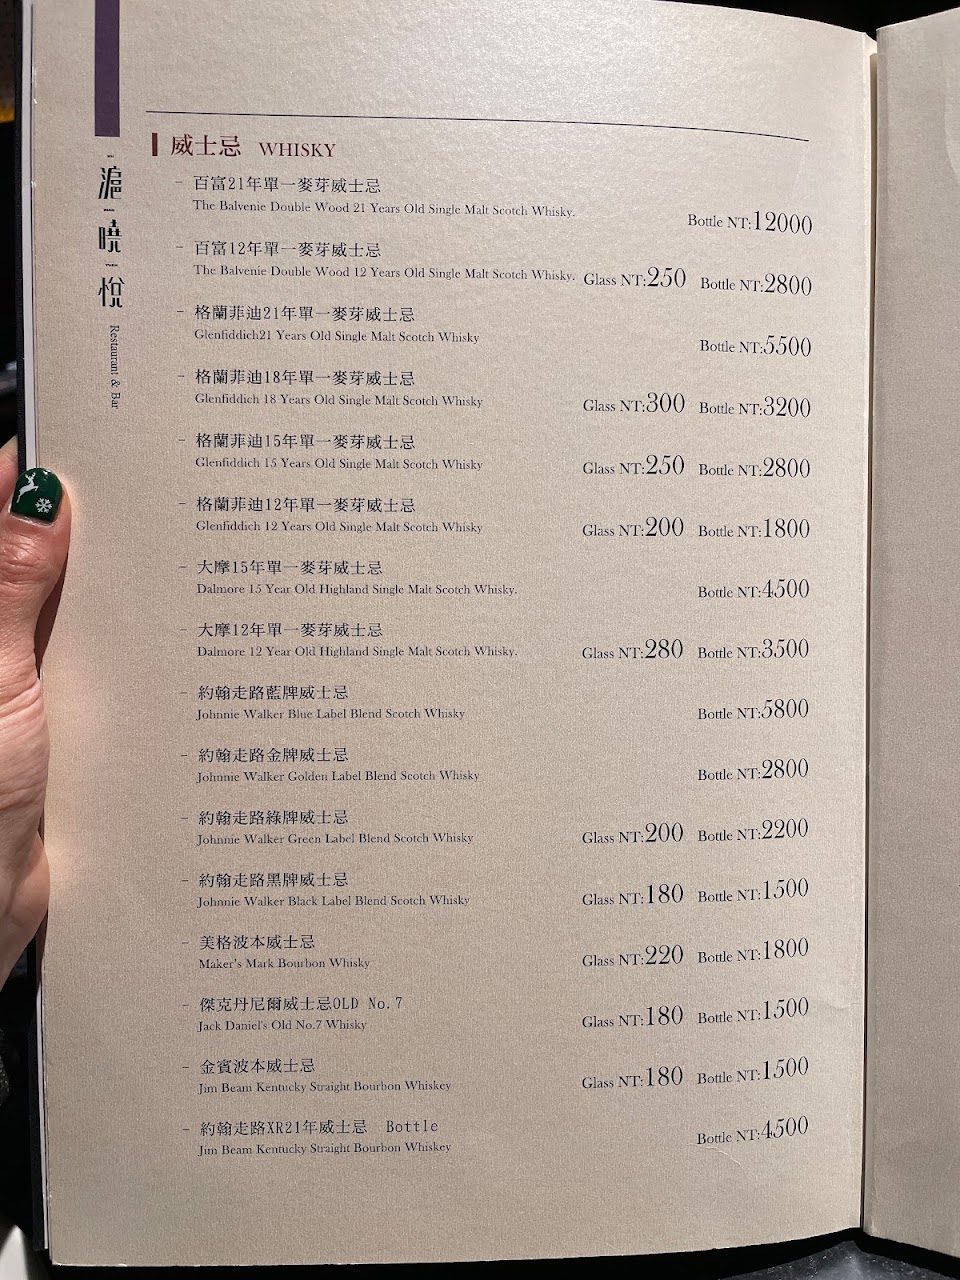 滬
曉
悅
Restaurant & Bar
威士忌 WHISKY
- 百富21年單一麥芽威士忌
The Balvenie Double Wood 21 Years Old Single Malt Scotch Whisky.
Bottle NT:12000
- 百富12年單一麥芽威士忌
The Balvenie Double Wood 12 Years Old Single Malt Scotch Whisky. Glass NT:250 Bottle NT:2800
- 格蘭菲迪21年單一麥芽威士忌
Glenfiddich21 Years Old Single Malt Scotch Whisky
Bottle NT:5500
- 格蘭菲迪18年單一麥芽威士忌
Glenfiddich 18 Years Old Single Malt Scotch Whisky Glass NT:300 Bottle NT:3200
- 格蘭菲迪15年單一麥芽威士忌
Glenfiddich 15 Years Old Single Malt Scotch Whisky Glass NT:250 Bottle NT:2800
- 格蘭菲迪12年單一麥芽威士忌
Glenfiddich 12 Years Old Single Malt Scotch Whisky Glass NT:200 Bottle NT:1800
- 大摩15年單一麥芽威士忌
Dalmore 15 Year Old Highland Single Malt Scotch Whisky. Bottle NT:4500
- 大摩12年單一麥芽威士忌
Dalmore 12 Year Old Highland Single Malt Scotch Whisky. Glass NT:280 Bottle NT:3500
- 約翰走路藍牌威士忌
Johnnie Walker Blue Label Blend Scotch Whisky Bottle NT:5800
- 約翰走路金牌威士忌
Johnnie Walker Golden Label Blend Scotch Whisky Bottle NT:2800
- 約翰走路綠牌威士忌
Johnnie Walker Green Label Blend Scotch Whisky Glass NT:200 Bottle NT:2200
- 約翰走路黑牌威士忌
Johnnie Walker Black Label Blend Scotch Whisky Glass NT:180 Bottle NT:1500
- 美格波本威士忌
Maker's Mark Bourbon Whisky Glass NT:220 Bottle NT:1800
- 傑克丹尼爾威士忌OLD No.7
Jack Daniel's Old No.7 Whisky Glass NT:180 Bottle NT:1500
- 金賓波本威士忌
Jim Beam Kentucky Straight Bourbon Whiskey Glass NT:180 Bottle NT:1500
- 約翰走路XR21年威士忌 Bottle
Jim Beam Kentucky Straight Bourbon Whiskey Bottle NT:4500